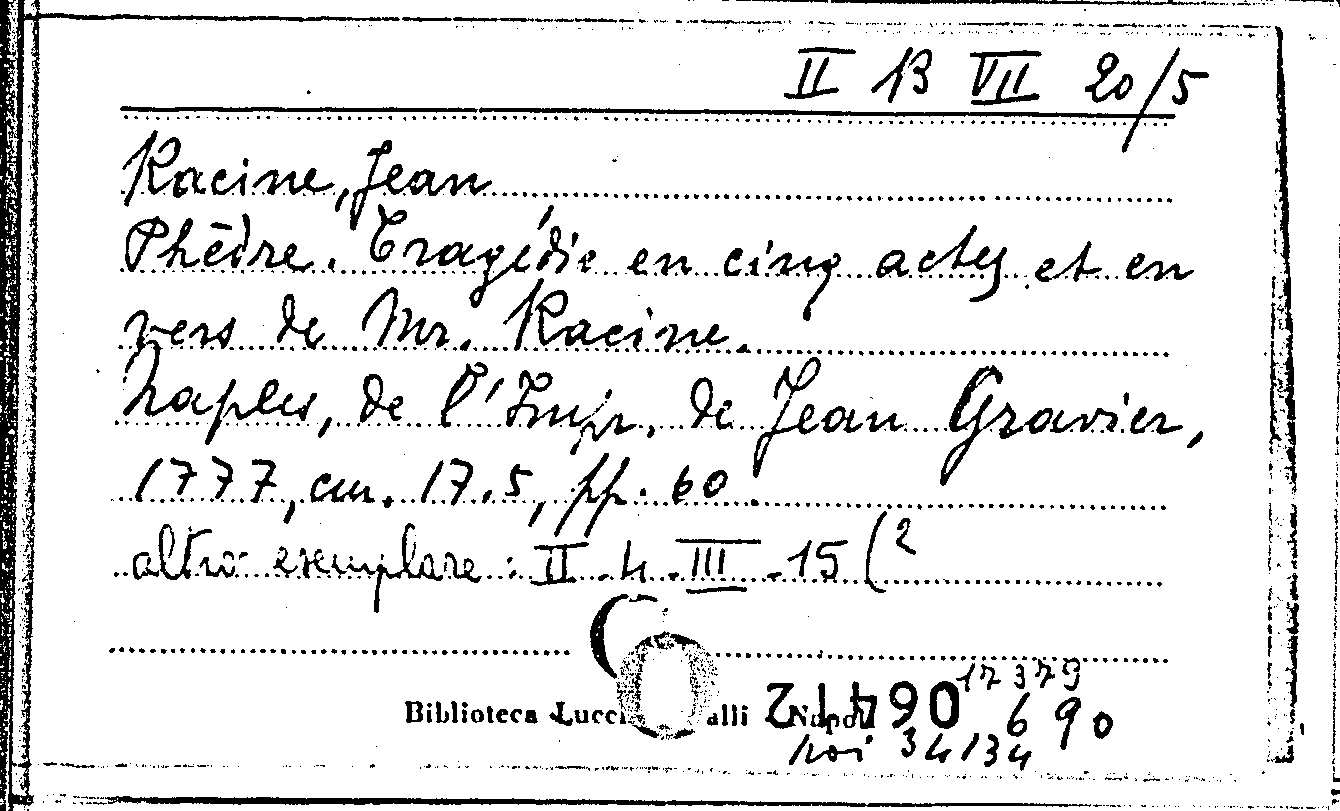 II 13 VII 20/5
Racine, Jean
Phèdre. Tragédie en cinq actes et en
vers de Mr. Racine.
Naples, de l'Impr. de Jean Gravier,
1777, cm. 17.5, pp. 60.
altro exemplare: II.4.III.15(2
17379
Biblioteca Lucch alli Napoli 690
34134